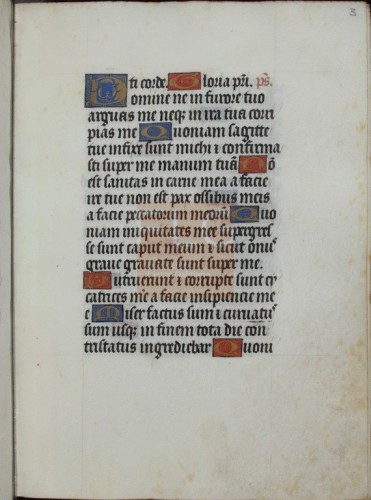 ti corde. Gloria pri. ps.
Domine ne in furore tuo
arguas me neqz in ira tua corri
pias me Quoniam sagitte
tue infixe sunt michi & confirma
sti super me manum tuā Nō
est sanitas in carne mea a facie
ire tue non est pax ossibus meis
a facie peccatorum meorū Quo
niam iniquitates mee supergres
se sunt caput meum & sicut onus
graue grauate sunt super me.
Putruerunt & corrupte sunt ci
catrices mee a facie insipiencie me
e Miser factus sum & curuatus
sum usqz in finem tota die con
tristatus ingrediebar Quoni